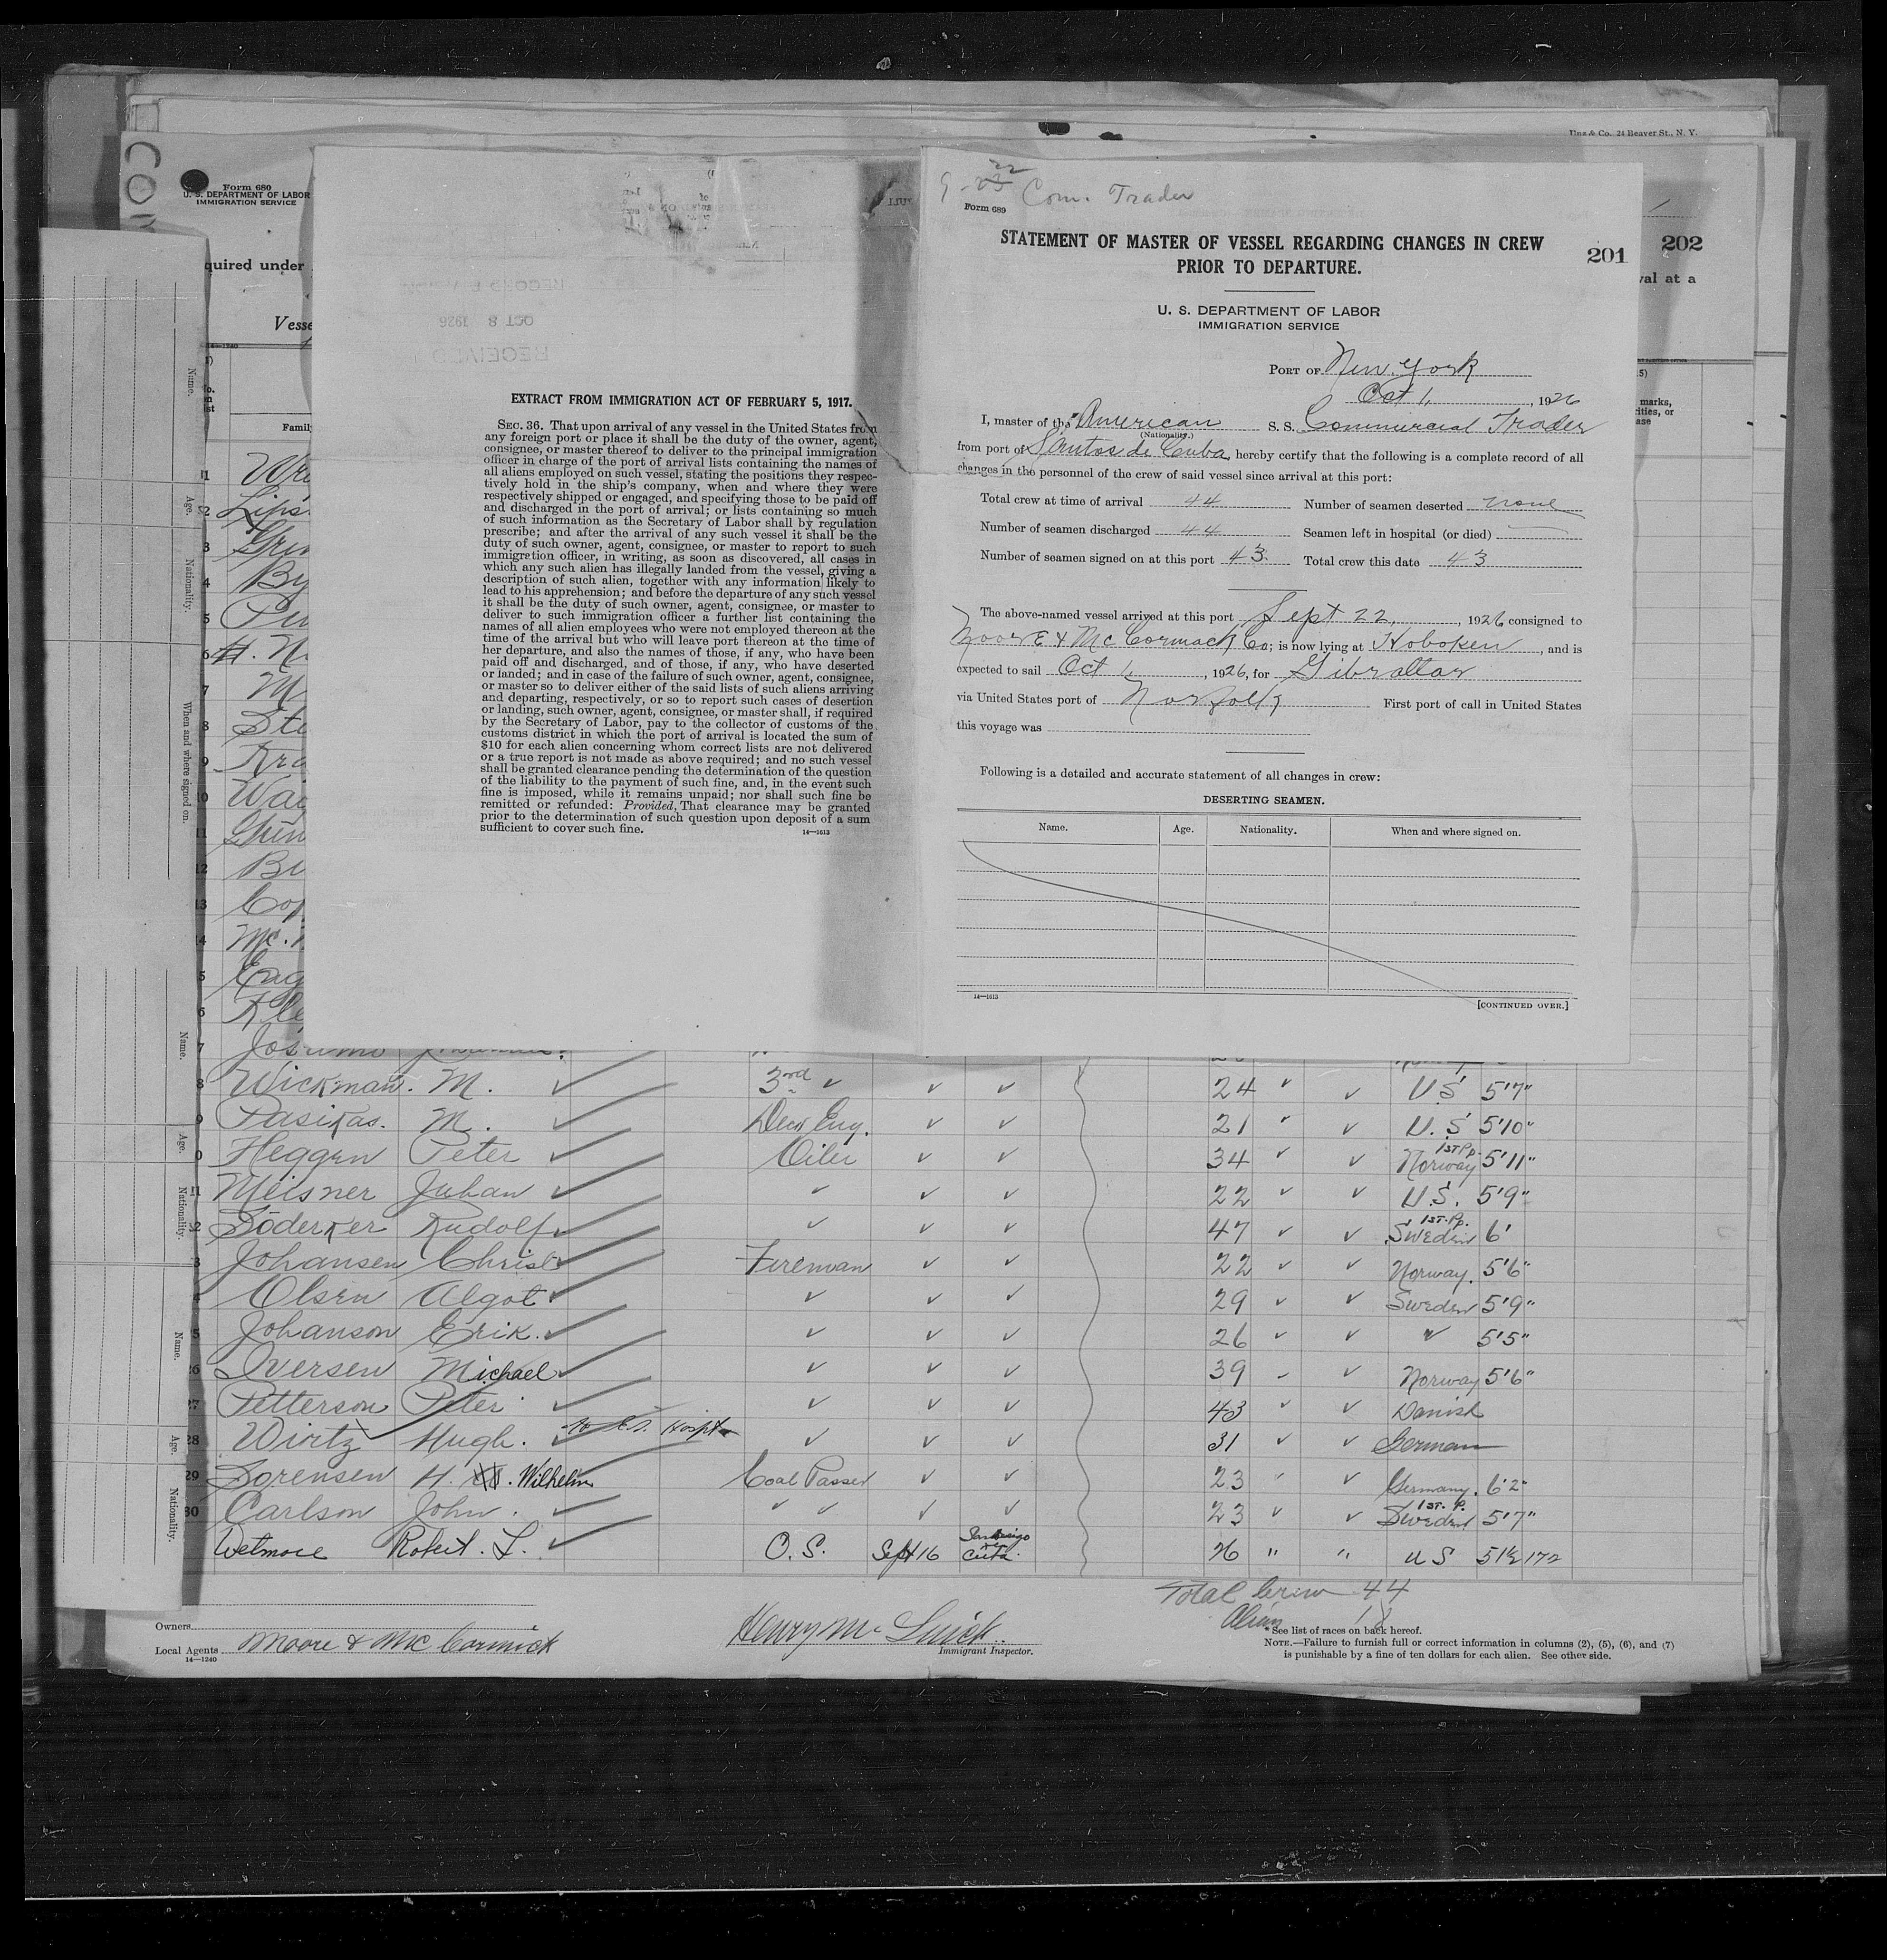 Unz & Co. 24 Beaver St., N. Y.
Form 680
U. S. DEPARTMENT OF LABOR
IMMIGRATION SERVICE
quired under
202
val at a
EXTRACT FROM IMMIGRATION ACT OF FEBRUARY 5, 1917.
SEC. 36. That upon arrival of any vessel in the United States from
any foreign port or place it shall be the duty of the owner, agent,
consignee, or master thereof to deliver to the principal immigration
officer in charge of the port of arrival lists containing the names of
all aliens employed on such vessel, stating the positions they respec-
tively hold in the ship's company, when and where they were
respectively shipped or engaged, and specifying those to be paid off
and discharged in the port of arrival; or lists containing so much
of such information as the Secretary of Labor shall by regulation
prescribe; and after the arrival of any such vessel it shall be the
duty of such owner, agent, consignee, or master to report to such
immigration officer, in writing, as soon as discovered, all cases in
which any such alien has illegally landed from the vessel, giving a
description of such alien, together with any information likely to
lead to his apprehension; and before the departure of any such vessel
it shall be the duty of such owner, agent, consignee, or master to
deliver to such immigration officer a further list containing the
names of all alien employees who were not employed thereon at the
time of the arrival but who will leave port thereon at the time of
her departure, and also the names of those, if any, who have been
paid off and discharged, and of those, if any, who have deserted
or landed; and in case of the failure of such owner, agent, consignee,
or master so to deliver either of the said lists of such aliens arriving
and departing, respectively, or so to report such cases of desertion
or landing, such owner, agent, consignee, or master shall, if required
by the Secretary of Labor, pay to the collector of customs of the
customs district in which the port of arrival is located the sum of
$10 for each alien concerning whom correct lists are not delivered
or a true report is not made as above required; and no such vessel
shall be granted clearance pending the determination of the question
of the liability to the payment of such fine, and, in the event such
fine is imposed, while it remains unpaid; nor shall such fine be
remitted or refunded: Provided, That clearance may be granted
prior to the determination of such question upon deposit of a sum
sufficient to cover such fine.
14—1613
Com. Trader
Form 689
STATEMENT OF MASTER OF VESSEL REGARDING CHANGES IN CREW
PRIOR TO DEPARTURE.
201
U. S. DEPARTMENT OF LABOR
IMMIGRATION SERVICE
PORT OF New York
Oct 1, , 1926
I, master of the American S. S. Commercial Trader
(Nationality.)
from port of Santos de Cuba, hereby certify that the following is a complete record of all
changes in the personnel of the crew of said vessel since arrival at this port:
Total crew at time of arrival 44 Number of seamen deserted none
Number of seamen discharged 44 Seamen left in hospital (or died)
Number of seamen signed on at this port 43 Total crew this date 43
The above-named vessel arrived at this port Sept 22, , 1926 consigned to
Moore & McCormack Co; is now lying at Hoboken , and is
expected to sail Oct 1, , 1926, for Gibraltar
via United States port of Norfolk First port of call in United States
this voyage was
Following is a detailed and accurate statement of all changes in crew:
DESERTING SEAMEN.
Name. Age. Nationality. When and where signed on.
14—1613
[CONTINUED OVER.]
Wickman. M. 3rd 24 U.S 5'7"
Pasikas. M. Deck Eng. 21 U.S 5'10"
Heggen Peter Oiler 34 1st Pp. Norway 5'11"
Meisner Juhan 22 U.S. 5'9"
Söderker Rudolf 47 1st. Pp. Sweden 6'
Johansen Christ Fireman 22 Norway. 5'6"
Olsen Algot 29 Sweden 5'9"
Johanson Erik. 26 5'5"
Iversen Michael 39 Norway 5'6"
27 Petterson Peter 43 Danish
28 Wirtz Hugh. Hospt 31 German
29 Sorensen H. Wilhelm Coal Passer 23 Germany. 6'2"
30 Carlson John. 23 1st. P. Sweden 5'7"
Wetmore Robert. L. O.S. Sept 16 Cuba. 26 " " US 5 1½ 172
Total Crew 44
Alien 18
Owners
Local Agents Moore & McCormick
14—1240
Immigrant Inspector.
*See list of races on back hereof.
NOTE.—Failure to furnish full or correct information in columns (2), (5), (6), and (7)
is punishable by a fine of ten dollars for each alien. See other side.